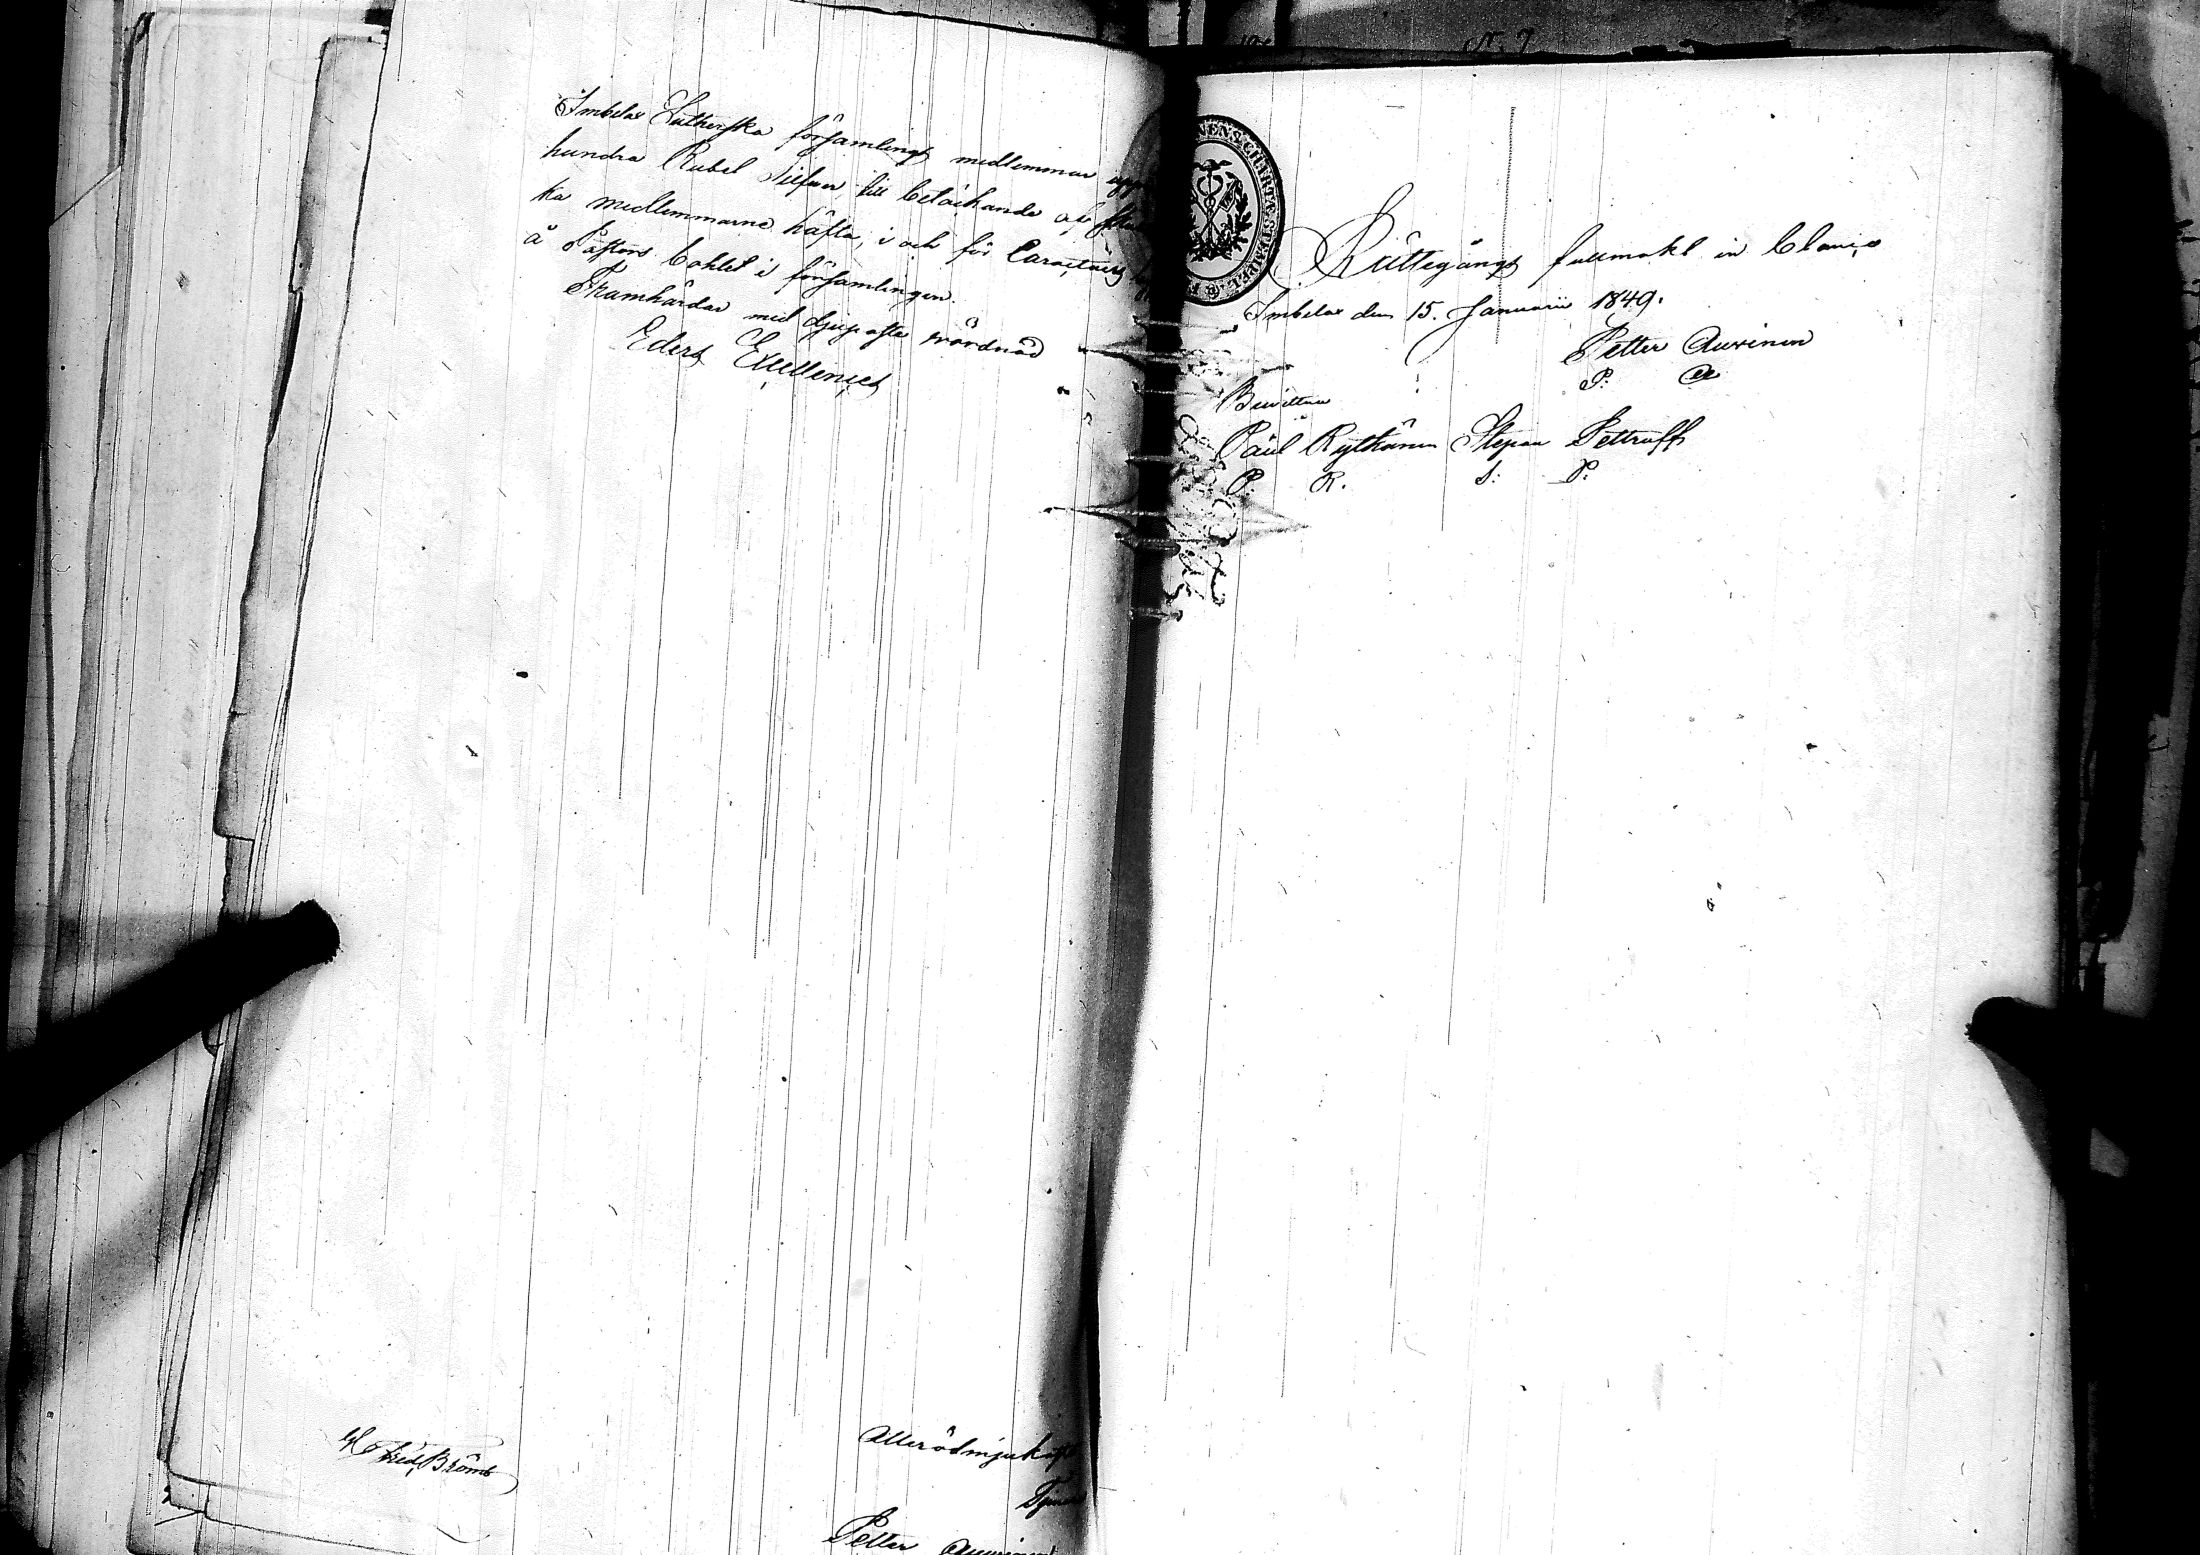 Imbelax Lutherska församlings medlemmar
hundra Rubel Silfver, till betäckande af
ka medlemmarne häfta, i och för
å Pastors bohlet i församlingen.
Framhärdar med djupaste wördnad
Eders Excellences
Allerödmjukaste
Petter Auvinen
N. 7
Rättegångs fullmakt in blanco
Imbelax den 15. Januarii 1849.
Petter Auvinen
P: A
Bewittna
Paul Rytkönen Stepan Pettruff
P: R. S: P: